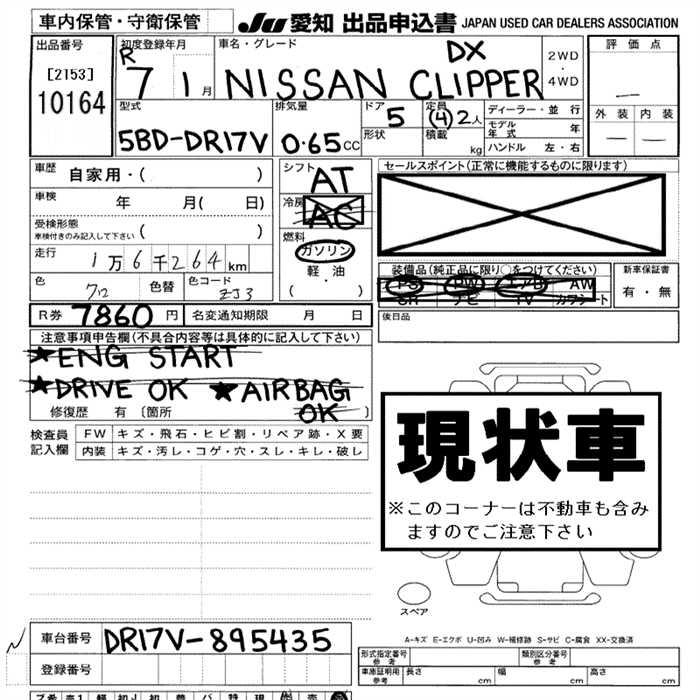 車内保管・守衛保管
JU 愛知 出品申込書 JAPAN USED CAR DEALERS ASSOCIATION
出品番号
[2153]
10164
初度登録年月
R
7 1 月
車名・グレード
DX
NISSAN CLIPPER
2WD
・
4WD
評価点
—
外装 内装
— —
型式
5BD-DR17V
排気量
0.65 CC
ドア
5
形状
定員
(4)2人
積載
kg
ディーラー・並行
モデル年式 年
ハンドル 左・右
車歴 自家用・( )
車検 年 月( 日)
受検形態
車検付きのみ記入して下さい ( )
走行 1万6千264km
色 712 色替 色コード ZJ3
シフト AT
冷房 AC
燃料
ガソリン
軽油
( ・ )
セールスポイント(正常に機能するものに限ります)
装備品(純正品に限り○をつけてください)
PS PW エアB AW
SR ナビ TV カワシート
新車保証書
有・無
後日品
R券 7860円 名変通知期限 月 日
注意事項申告欄(不具合内容等は具体的に記入して下さい)
★ENG START
★DRIVE OK ★AIRBAG
OK
修復歴 有 〔箇所 〕
検査員
記入欄
FW キズ・飛石・ヒビ割・リペア跡・X要
内装 キズ・汚レ・コゲ・穴・スレ・キレ・破レ
現状車
※このコーナーは不動車も含み
ますのでご注意下さい
スペア
A-キズ E-エクボ U-凹み W-補修跡 S-サビ C-腐食 XX-交換済
車台番号 DR17V-895435
登録番号
形式指定番号
参考
類別区分番号
参考
車庫証明用
参考
長さ cm 幅 cm 高さ cm